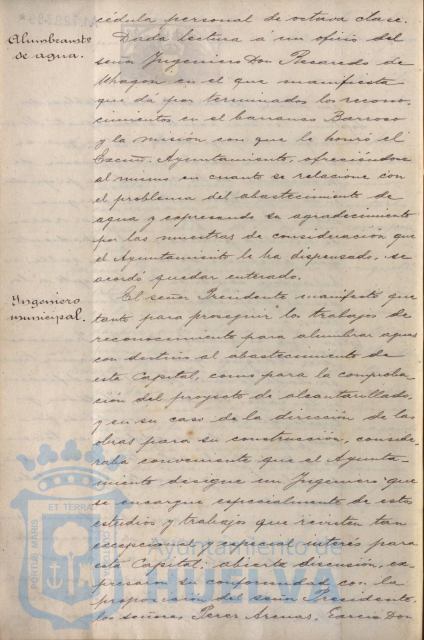 cédula personal de octava clase.
Alumbramiento
de agua.
Dada lectura á un oficio del
señor Ingeniero Don Recaredo de
Uhagon en el que manifiesta
que dá por terminados los recono-
cimientos en el barranco Barroso
y la misión con que le honró el
Excmo. Ayuntamiento, ofreciéndose
al mismo en cuanto se relacione con
el problema del abastecimiento de
agua y expresando su agradecimiento
por las muestras de consideración que
el Ayuntamiento le ha dispensado, se
acordó quedar enterado.
Ingeniero
municipal.
El señor Presidente manifestó que
tanto para proseguir los trabajos de
reconocimiento para alumbrar aguas
con destino al abastecimiento de
esta Capital, como para la comproba-
ción del proyecto de alcantarillado,
y en su caso de la dirección de las
obras para su construcción, conside-
raba conveniente que el Ayunta-
miento designe un Ingeniero que
se encargue especialmente de estos
estudios y trabajos que revisten tan
excepcional y especial interés para
esta Capital; abierta discusión, ex-
presaron su conformidad con la
proposición del señor Presidente,
los señores Perez Arenas, García Don
ET TERRA
PORTUS MARIS
Ayuntamiento de
HUELVA